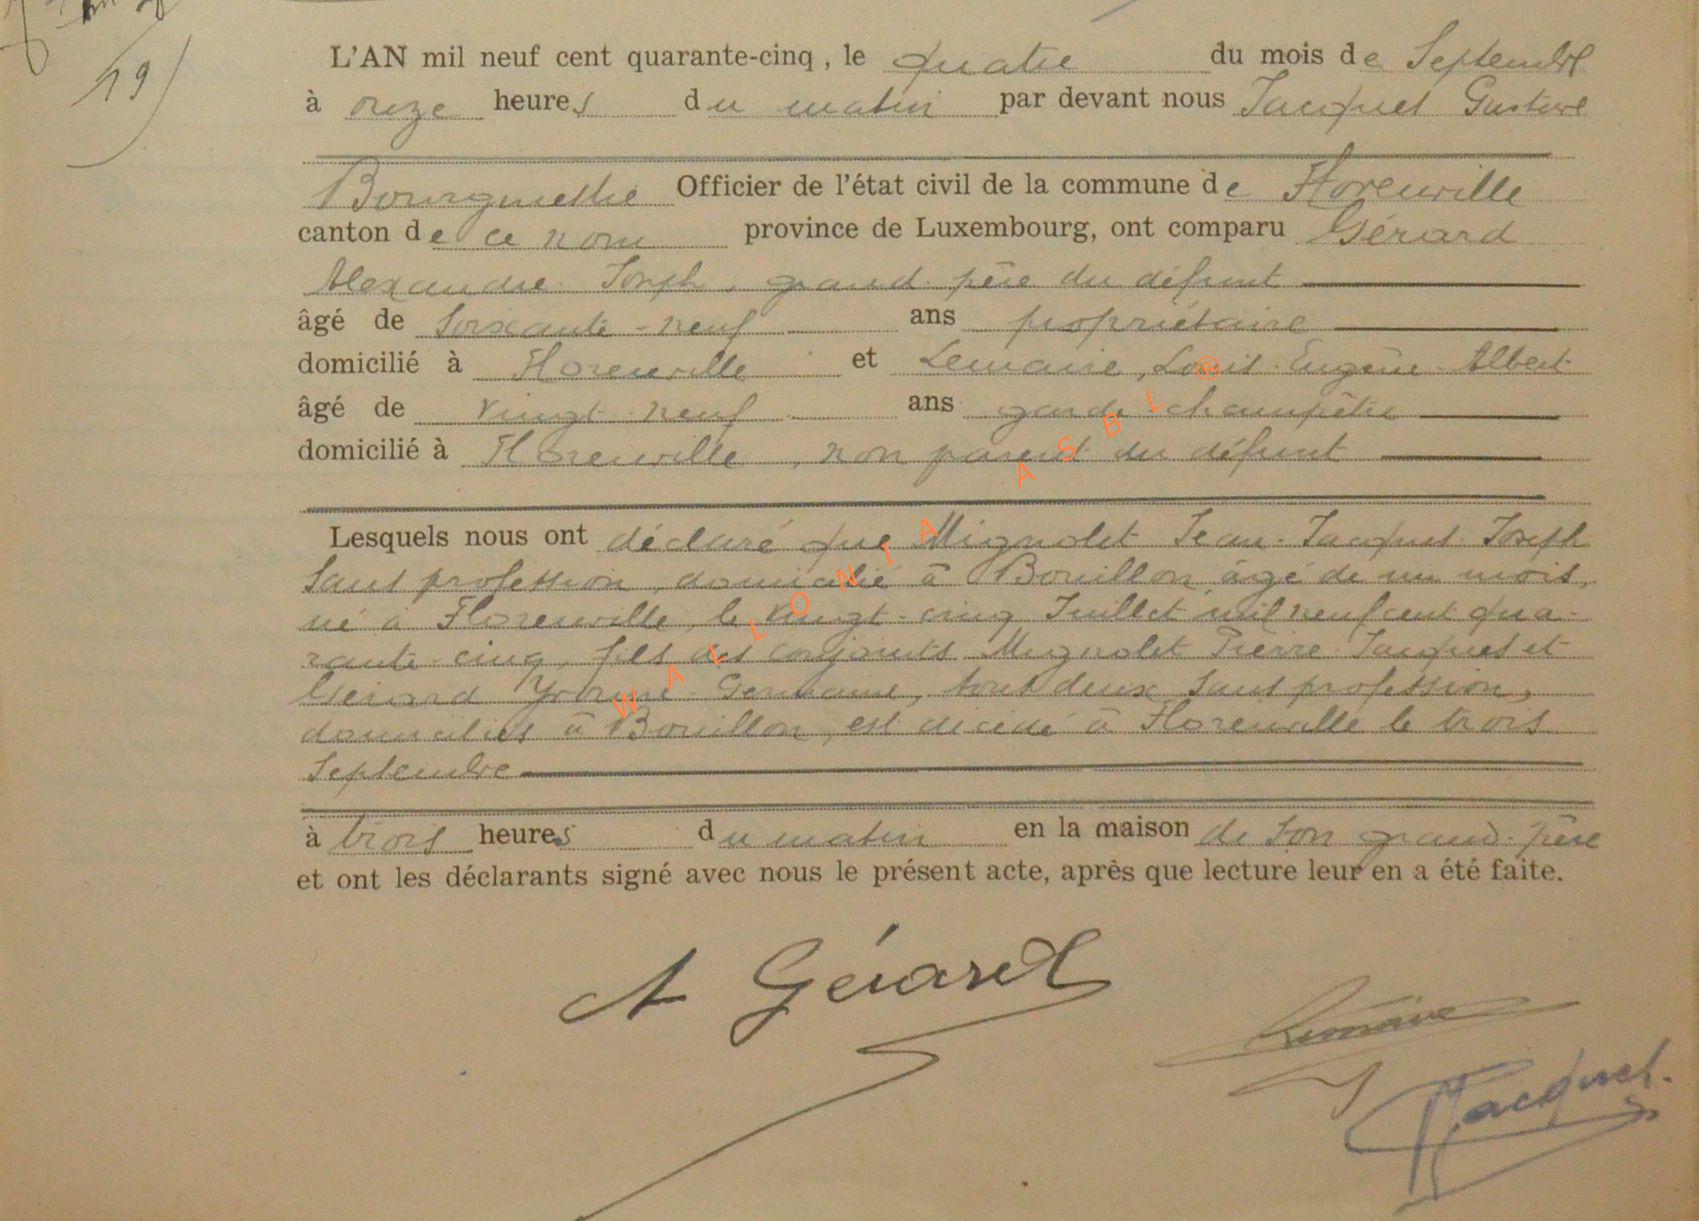 19)
L'AN mil neuf cent quarante-cinq, le quatre du mois de Septembre
à onze heures du matin par devant nous Jacques Gustave
Bourgmestre Officier de l'état civil de la commune de Florenville
canton de ce nom province de Luxembourg, ont comparu Gérard
Alexandre Joseph, grand-père du défunt
âgé de soixante-neuf ans propriétaire
domicilié à Florenville et Lemaire, Louis-Eugène-Albert
âgé de vingt-neuf ans garde champêtre
domicilié à Florenville, non parent du défunt
Lesquels nous ont déclaré que Mignolet Jean-Jacques-Joseph
sans profession, domicilié à Bouillon, âgé de un mois,
né à Florenville, le vingt-cinq Juillet mil neuf cent qua-
rante-cinq, fils des conjoints Mignolet Pierre-Jacques et
Gérard Yvonne-Germaine, tout deux sans profession,
domiciliés à Bouillon, est décédé à Florenville le trois
Septembre
à trois heures du matin en la maison de son grand-père
et ont les déclarants signé avec nous le présent acte, après que lecture leur en a été faite.
A Gérard
Lemaire
Jacques.
WALLONIA ASBL ®